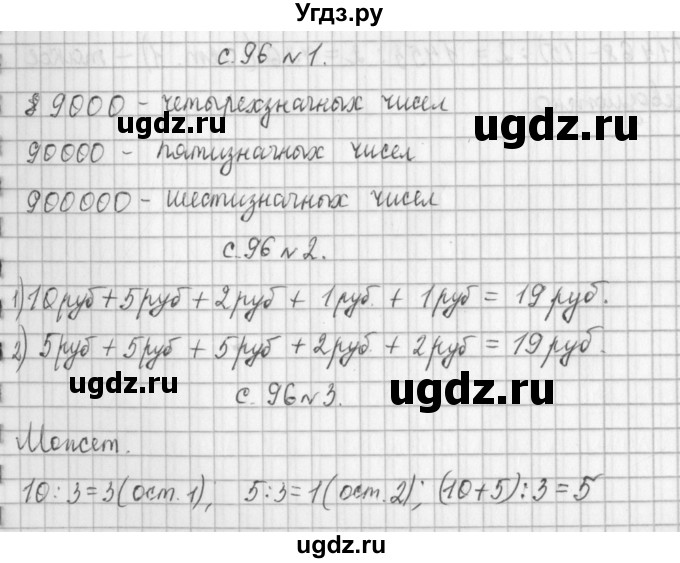 Угдз.ру
с. 96 № 1.
9000 - четырехзначных чисел
90000 - пятизначных чисел
900000 - шестизначных чисел
с. 96 № 2.
1) 10 руб + 5 руб + 2 руб + 1 руб. + 1 руб = 19 руб.
2) 5 руб + 5 руб + 5 руб + 2 руб. + 2 руб = 19 руб.
с. 96 № 3.
Может.
10 : 3 = 3 (ост. 1); 5 : 3 = 1 (ост. 2); (10 + 5) : 3 = 5
ugdz.ru
ugdz.ru
ugdz.ru
ugdz.ru
ugdz.ru